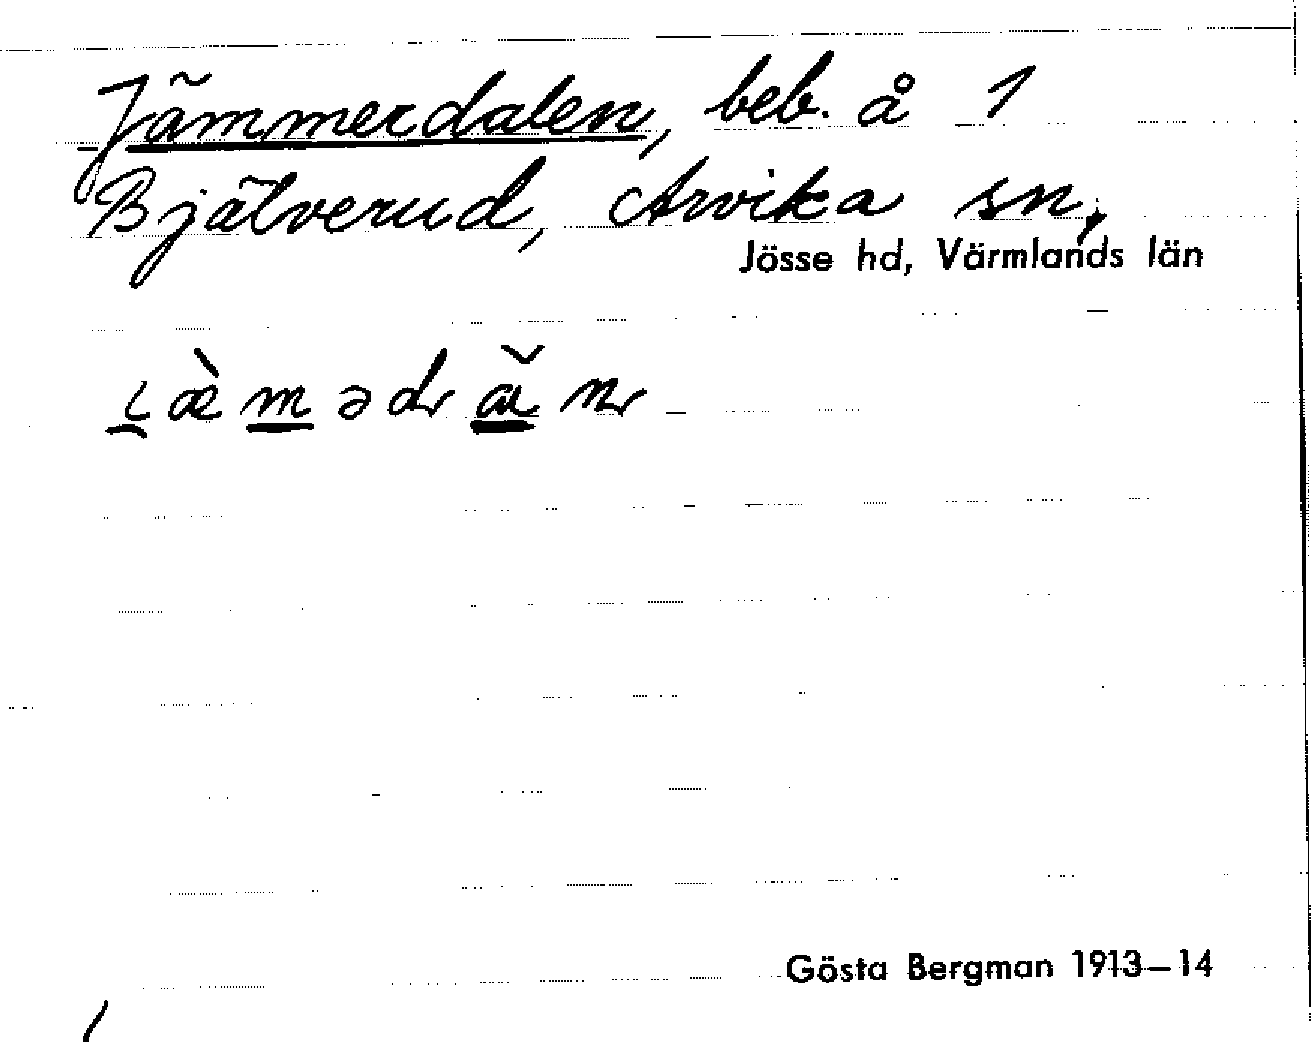 Jämmerdalen, beb. å 1
Bjälverud, Arvika sn,
Jösse hd, Värmlands län
Gösta Bergman 1913–14